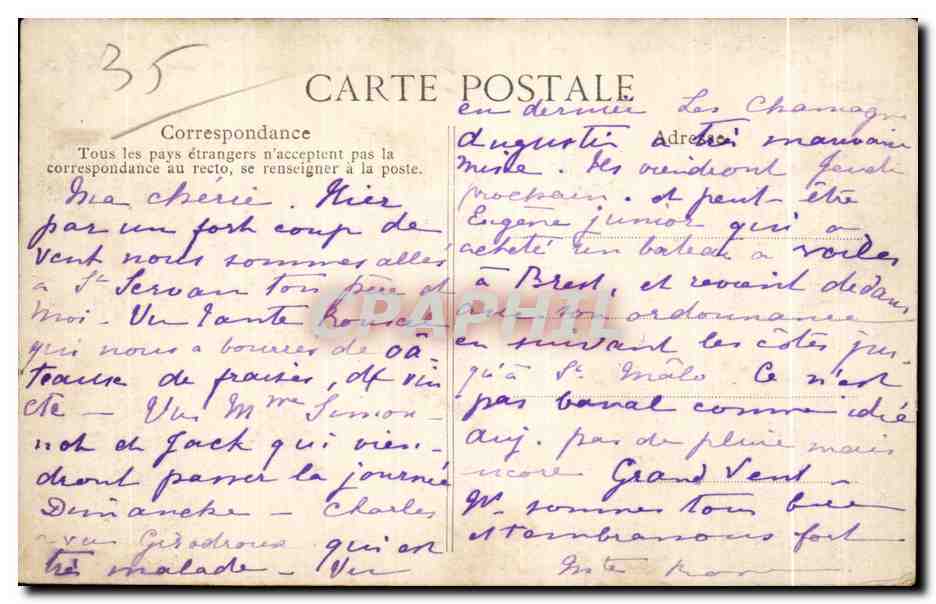 35
CARTE POSTALE
Correspondance
Tous les pays étrangers n'acceptent pas la
correspondance au recto, se renseigner à la poste.
Ma chérie. Hier
par un fort coup de
vent nous sommes allés
à St Servan ton père et
moi - Vu Tante
qui nous a bourrés de gâ-
teaux de fraises, de vin
etc - Vu Mme Simon-
not et Jack qui vien-
dront passer la journée
Dimanche - Charles
qui est
très malade - Vu
Adresse
en dernier Les
Augustin a très mauvaise
mine. Ils viendront Jeudi
prochain. et peut-être
Eugène junior qui a
acheté un bateau à voiles
à Brest, et revient dedans
avec son ordonnance
en suivant les côtes jus-
qu'à St Mâlo. Ce n'est
pas banal comme idée
auj. pas de pluie mais
encore Grand Vent -
Ns sommes tous bien
et t'embrassons fort
CPAPHIL